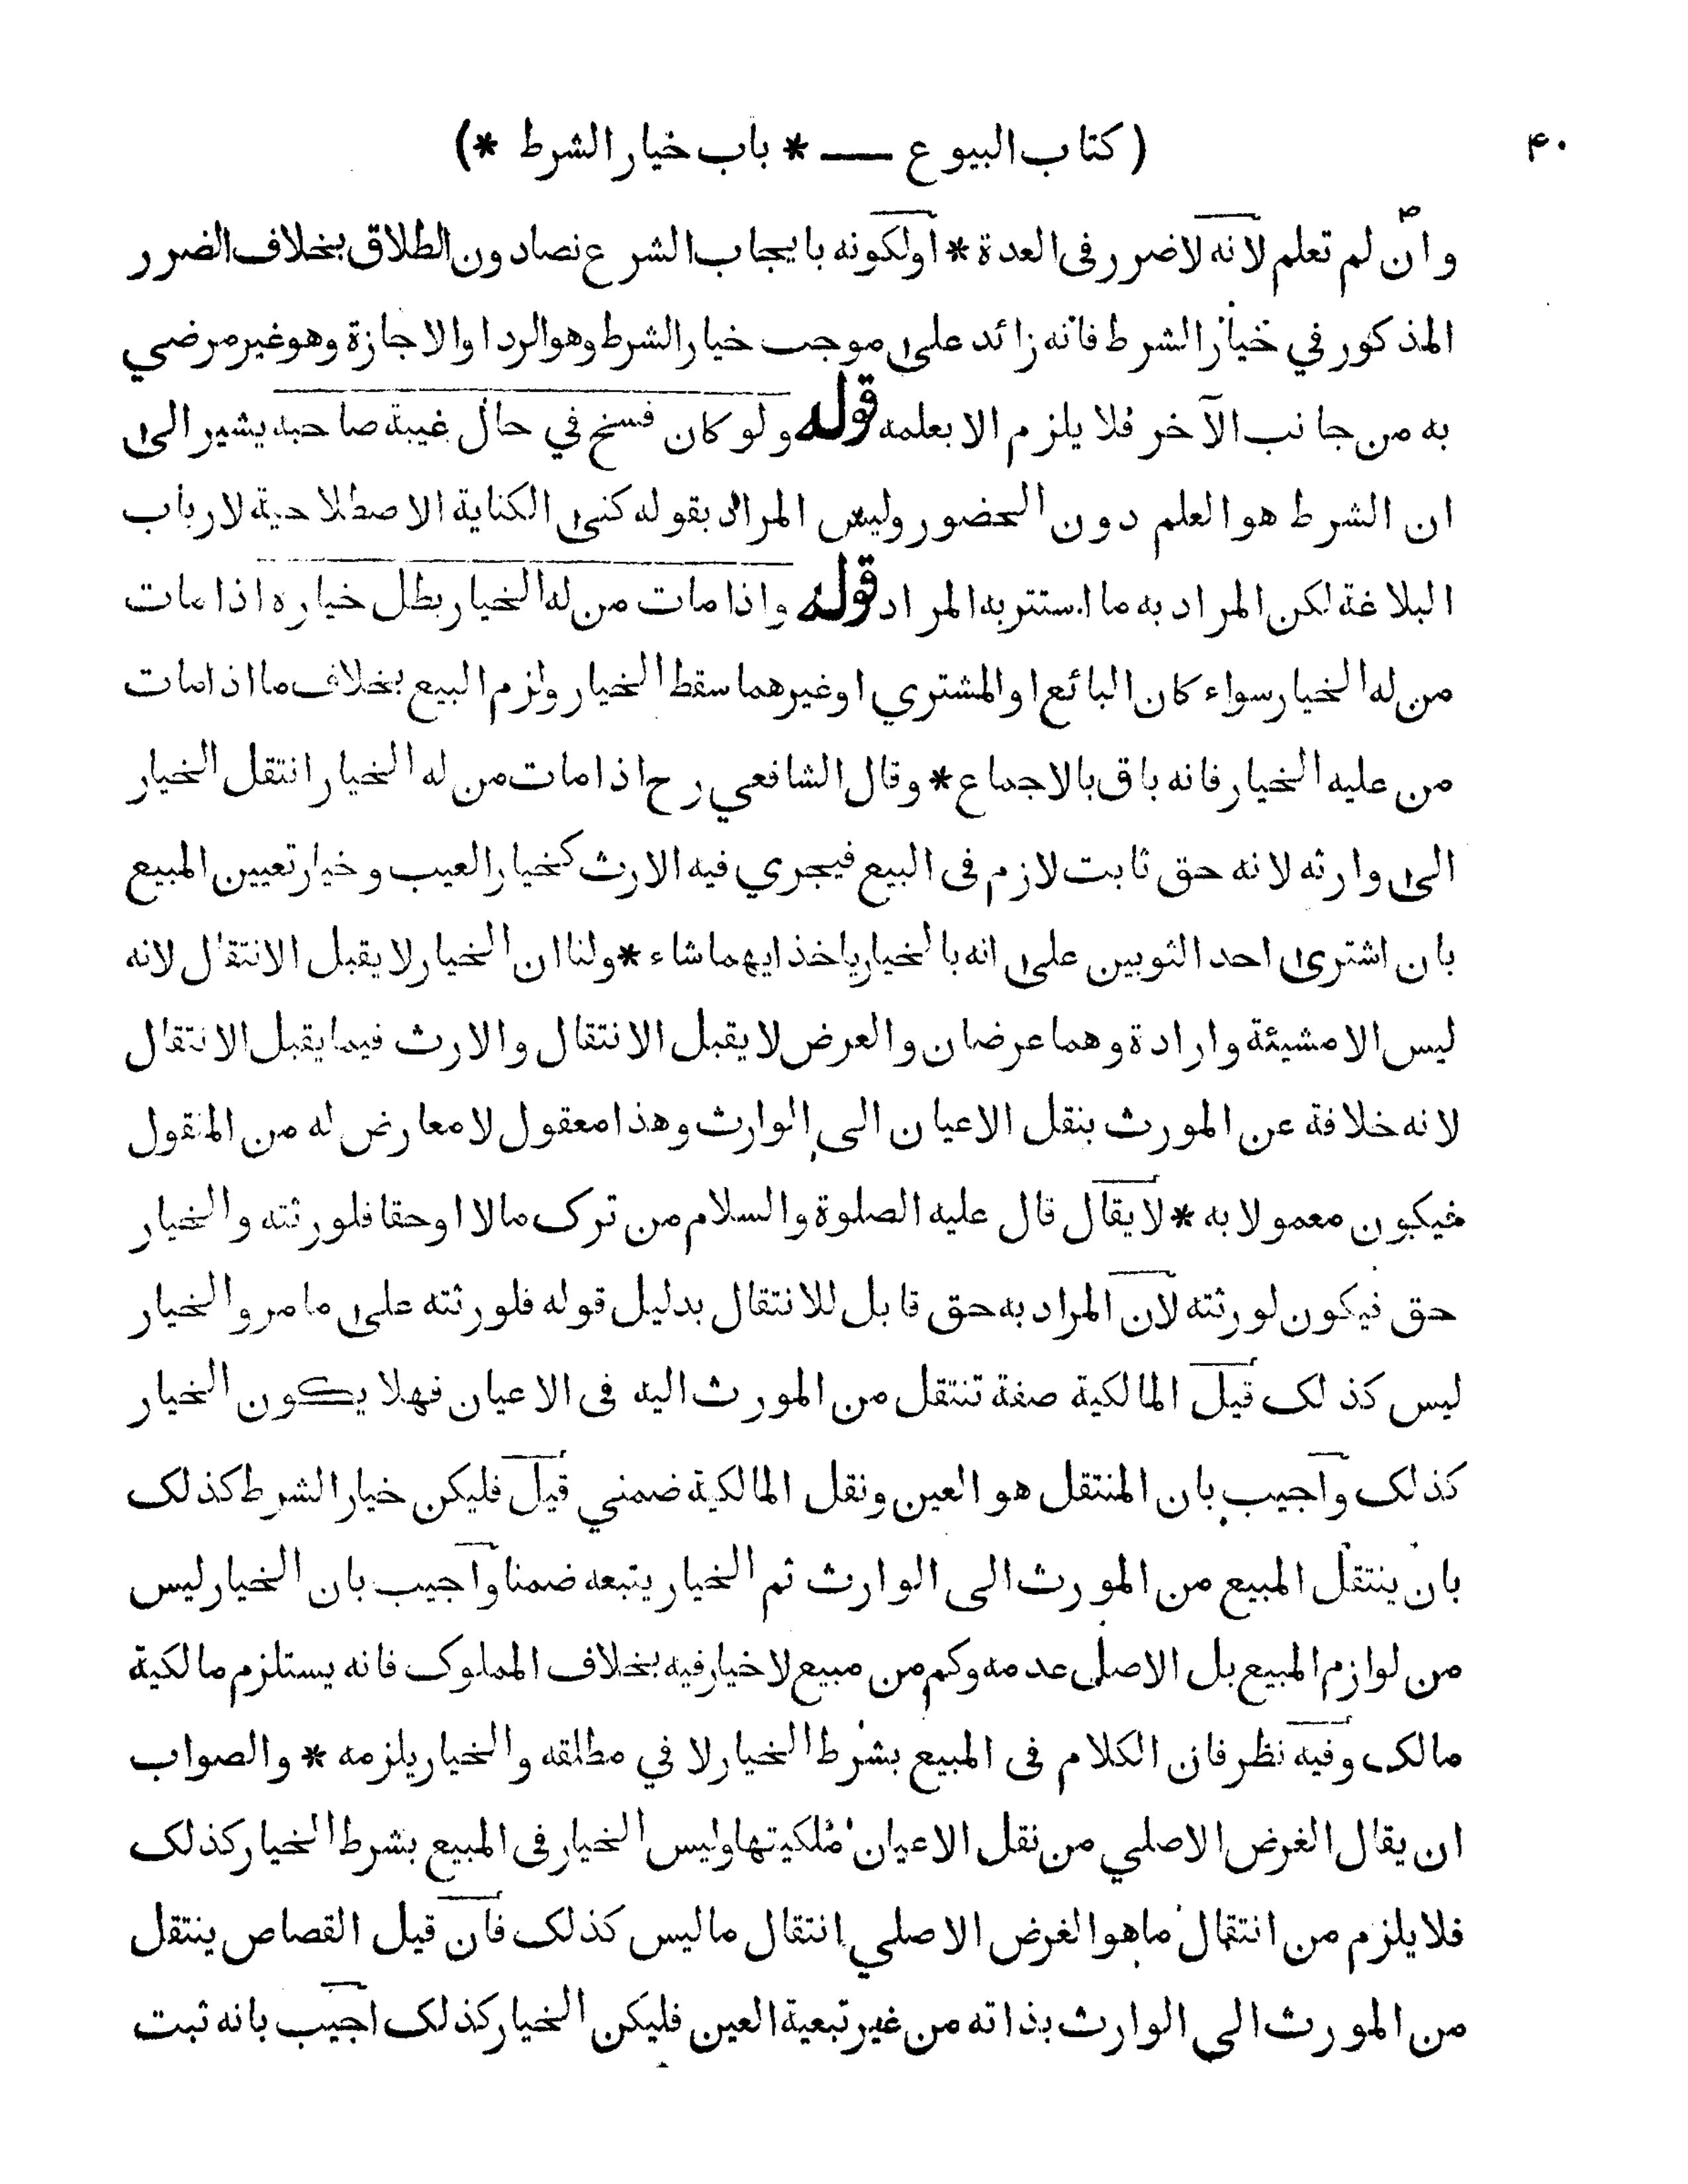 (كتاب البيوع — * باب خيار الشرط *) ۴۰
وان لم تعلم لانه لا ضرر فى العدة * اولكونه بايجاب الشرع نصا دون الطلاق بخلاف الضرر
المذكور في خيار الشرط فانه زائد على موجب خيار الشرط وهو الرد او الاجازة وهو غير مرضي
به من جانب الآخر فلا يلزم الا بعلمه قوله ولو كان فسخ في حال غيبة صاحبه يشير الى
ان الشرط هو العلم دون الحضور وليس المراد بقوله كنى الكناية الاصطلاحية لارباب
البلاغة لكن المراد به ما استتر به المراد قوله واذا مات من له الخيار بطل خياره اذا مات
من له الخيار سواء كان البائع او المشتري او غيرهما سقط الخيار ولزم البيع بخلاف ما اذا مات
من عليه الخيار فانه باق بالاجماع * وقال الشافعي رح اذا مات من له الخيار انتقل الخيار
الى وارثه لانه حق ثابت لازم فى البيع فيجري فيه الارث كخيار العيب وخيار تعيين المبيع
بان اشترى احد الثوبين على انه بالخيار ياخذ ايهما شاء * ولنا ان الخيار لا يقبل الانتقال لانه
ليس الا مشيئة وارادة وهما عرضان والعرض لا يقبل الانتقال والارث فيما يقبل الانتقال
لانه خلافة عن المورث بنقل الاعيان الى الوارث وهذا معقول لا معارض له من المنقول
فيكون معمولا به * لا يقال قال عليه الصلوة والسلام من ترك مالا او حقا فلورثته والخيار
حق فيكون لورثته لان المراد به حق قابل للانتقال بدليل قوله فلورثته على ما مر والخيار
ليس كذلك قيل المالكية صفة تنتقل من المورث اليه فى الاعيان فهلا يكون الخيار
كذلك واجيب بان المنتقل هو العين ونقل المالكية ضمني قيل فليكن خيار الشرط كذلك
بان ينتقل المبيع من المورث الى الوارث ثم الخيار يتبعه ضمنا واجيب بان الخيار ليس
من لوازم المبيع بل الاصل عدمه وكم من مبيع لا خيار فيه بخلاف المملوك فانه يستلزم مالكية
مالك وفيه نظر فان الكلام فى المبيع بشرط الخيار لا في مطلقه والخيار يلزمه * والصواب
ان يقال الغرض الاصلي من نقل الاعيان ملكيتها وليس الخيار فى المبيع بشرط الخيار كذلك
فلا يلزم من انتقال ما هو الغرض الاصلي انتقال ما ليس كذلك فان قيل القصاص ينتقل
من المورث الى الوارث بذاته من غير تبعية العين فليكن الخيار كذلك اجيب بانه ثبت